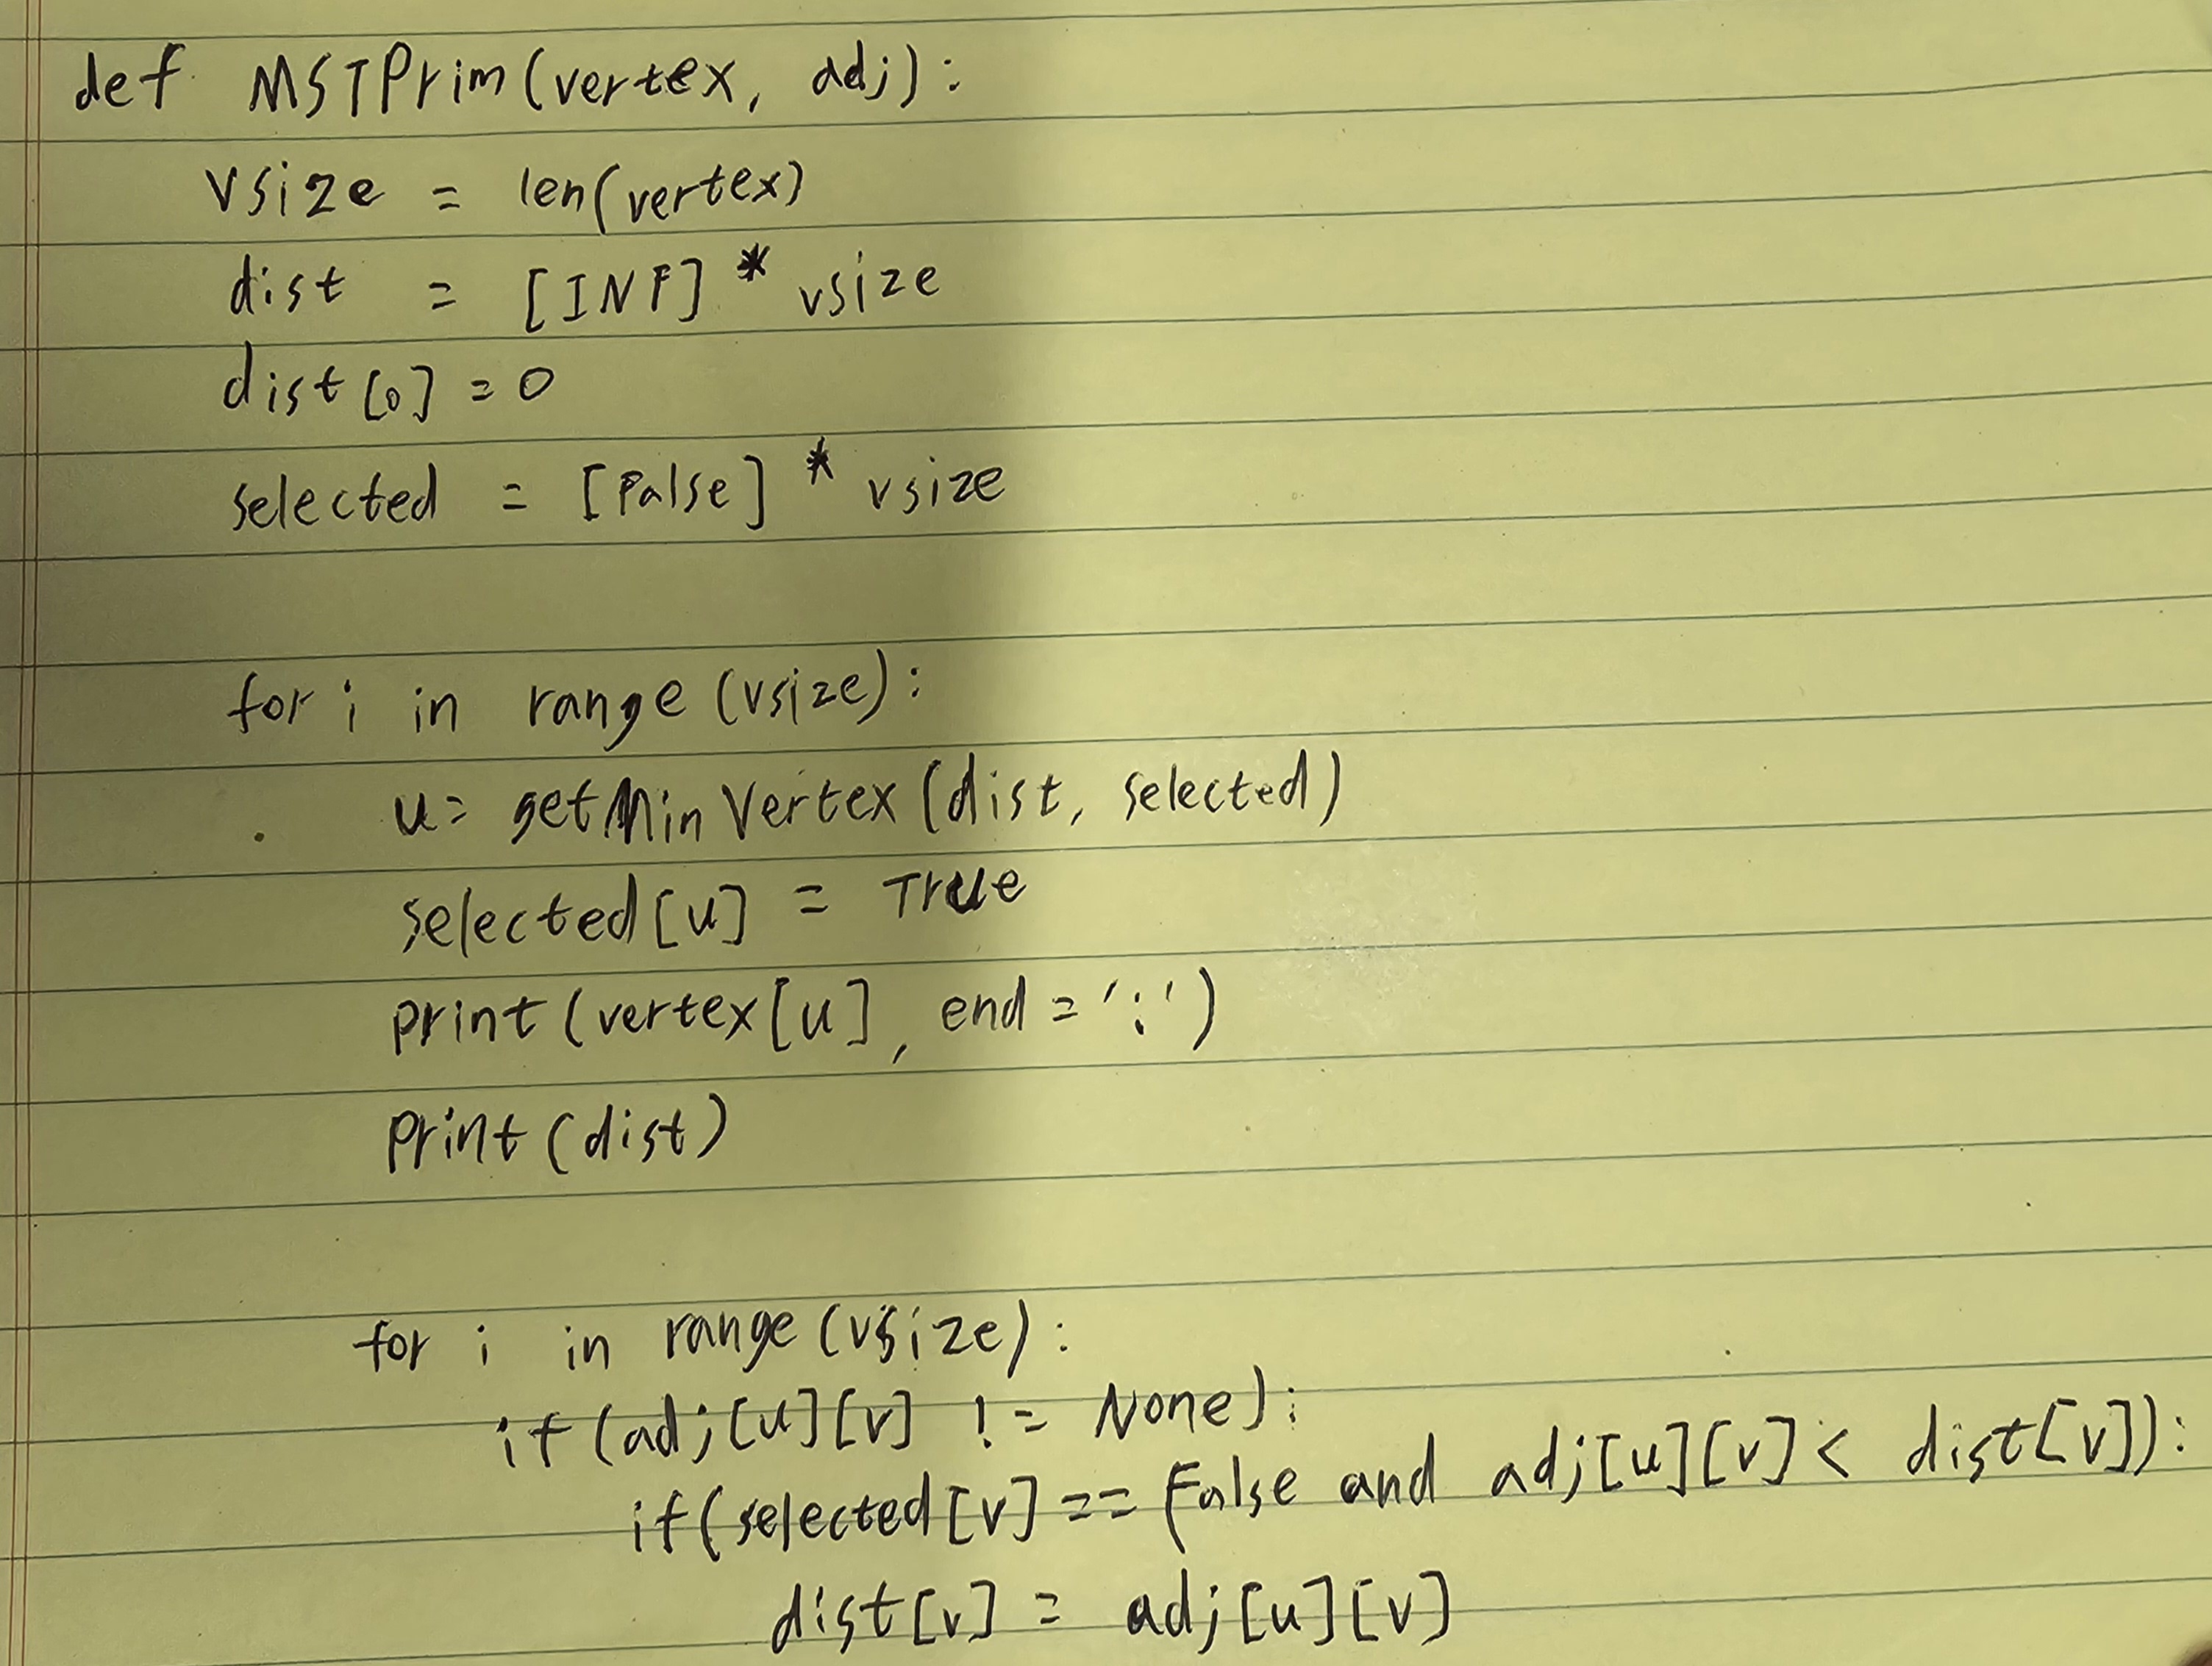 def MSTPrim(vertex, adj):
vsize = len(vertex)
dist = [INF] * vsize
dist[0] = 0
selected = [False] * vsize
for i in range (vsize):
u = getMinVertex (dist, selected)
selected[u] = True
print (vertex[u], end = ':')
print (dist)
for i in range (vsize):
if (adj[u][v] != None):
if (selected[v] == False and adj[u][v] < dist[v]):
dist[v] = adj[u][v]